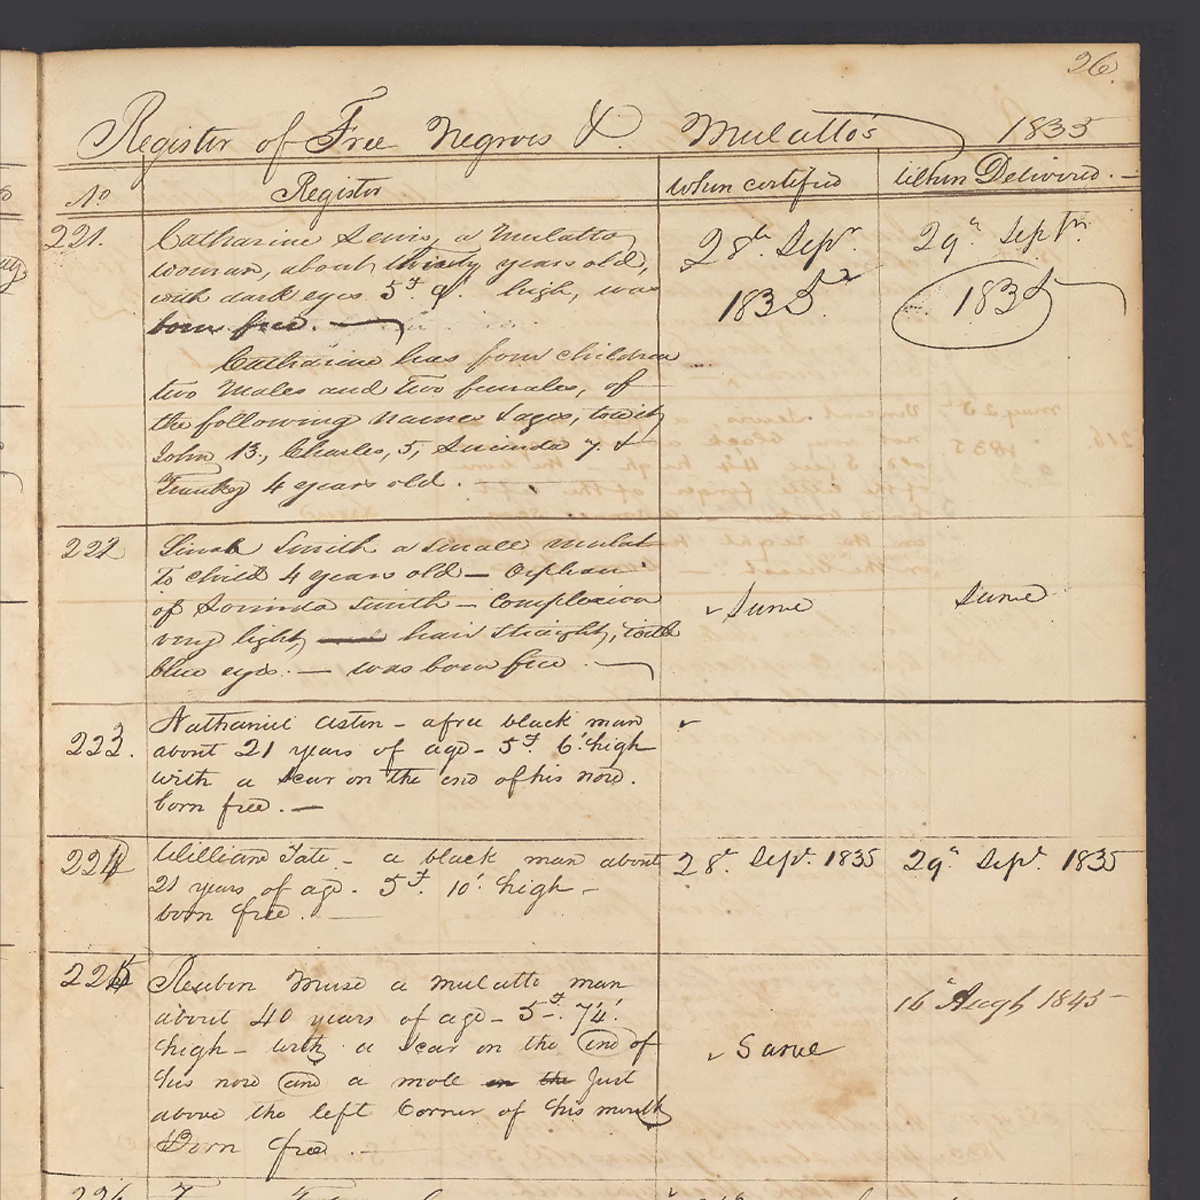 26.
Register of Free Negroes & Mulatto's 1835
No Register When certified When Delivered. —
221. Catharine Lewis, a Mulatto
woman, about thirty years old,
with dark eyes 5ft 9'. high, was
born free. —
28th Sepr
1835
29th Septr
1835
Catharine has four children
two Males and two females, of
the following names & ages, towit,
John 13, Charles, 5, Lucinda 7. &
4 years old.
222 Smith a small mulat
to child 4 years old — Orphan
of Lorinda Smith — Complexion
very light, hair straight, with
blue eyes. — was born free.
Same Same
223. Nathaniel Astin - a free black man
about 21 years of age - 5ft 6' high
with a Scar on the end of his nose.
born free. —
224 William Tate - a black man about
21 years of age - 5ft. 10' high -
born free.
28th Sept. 1835 29th Sept. 1835
225 Reuben Muse a mulatto man
about 40 years of age - 5ft. 7½'
high - with a Scar on the end of
his nose and a mole in the Just
above the left Corner of his mouth
Born free.
Same
16th Augt 1845 -
226